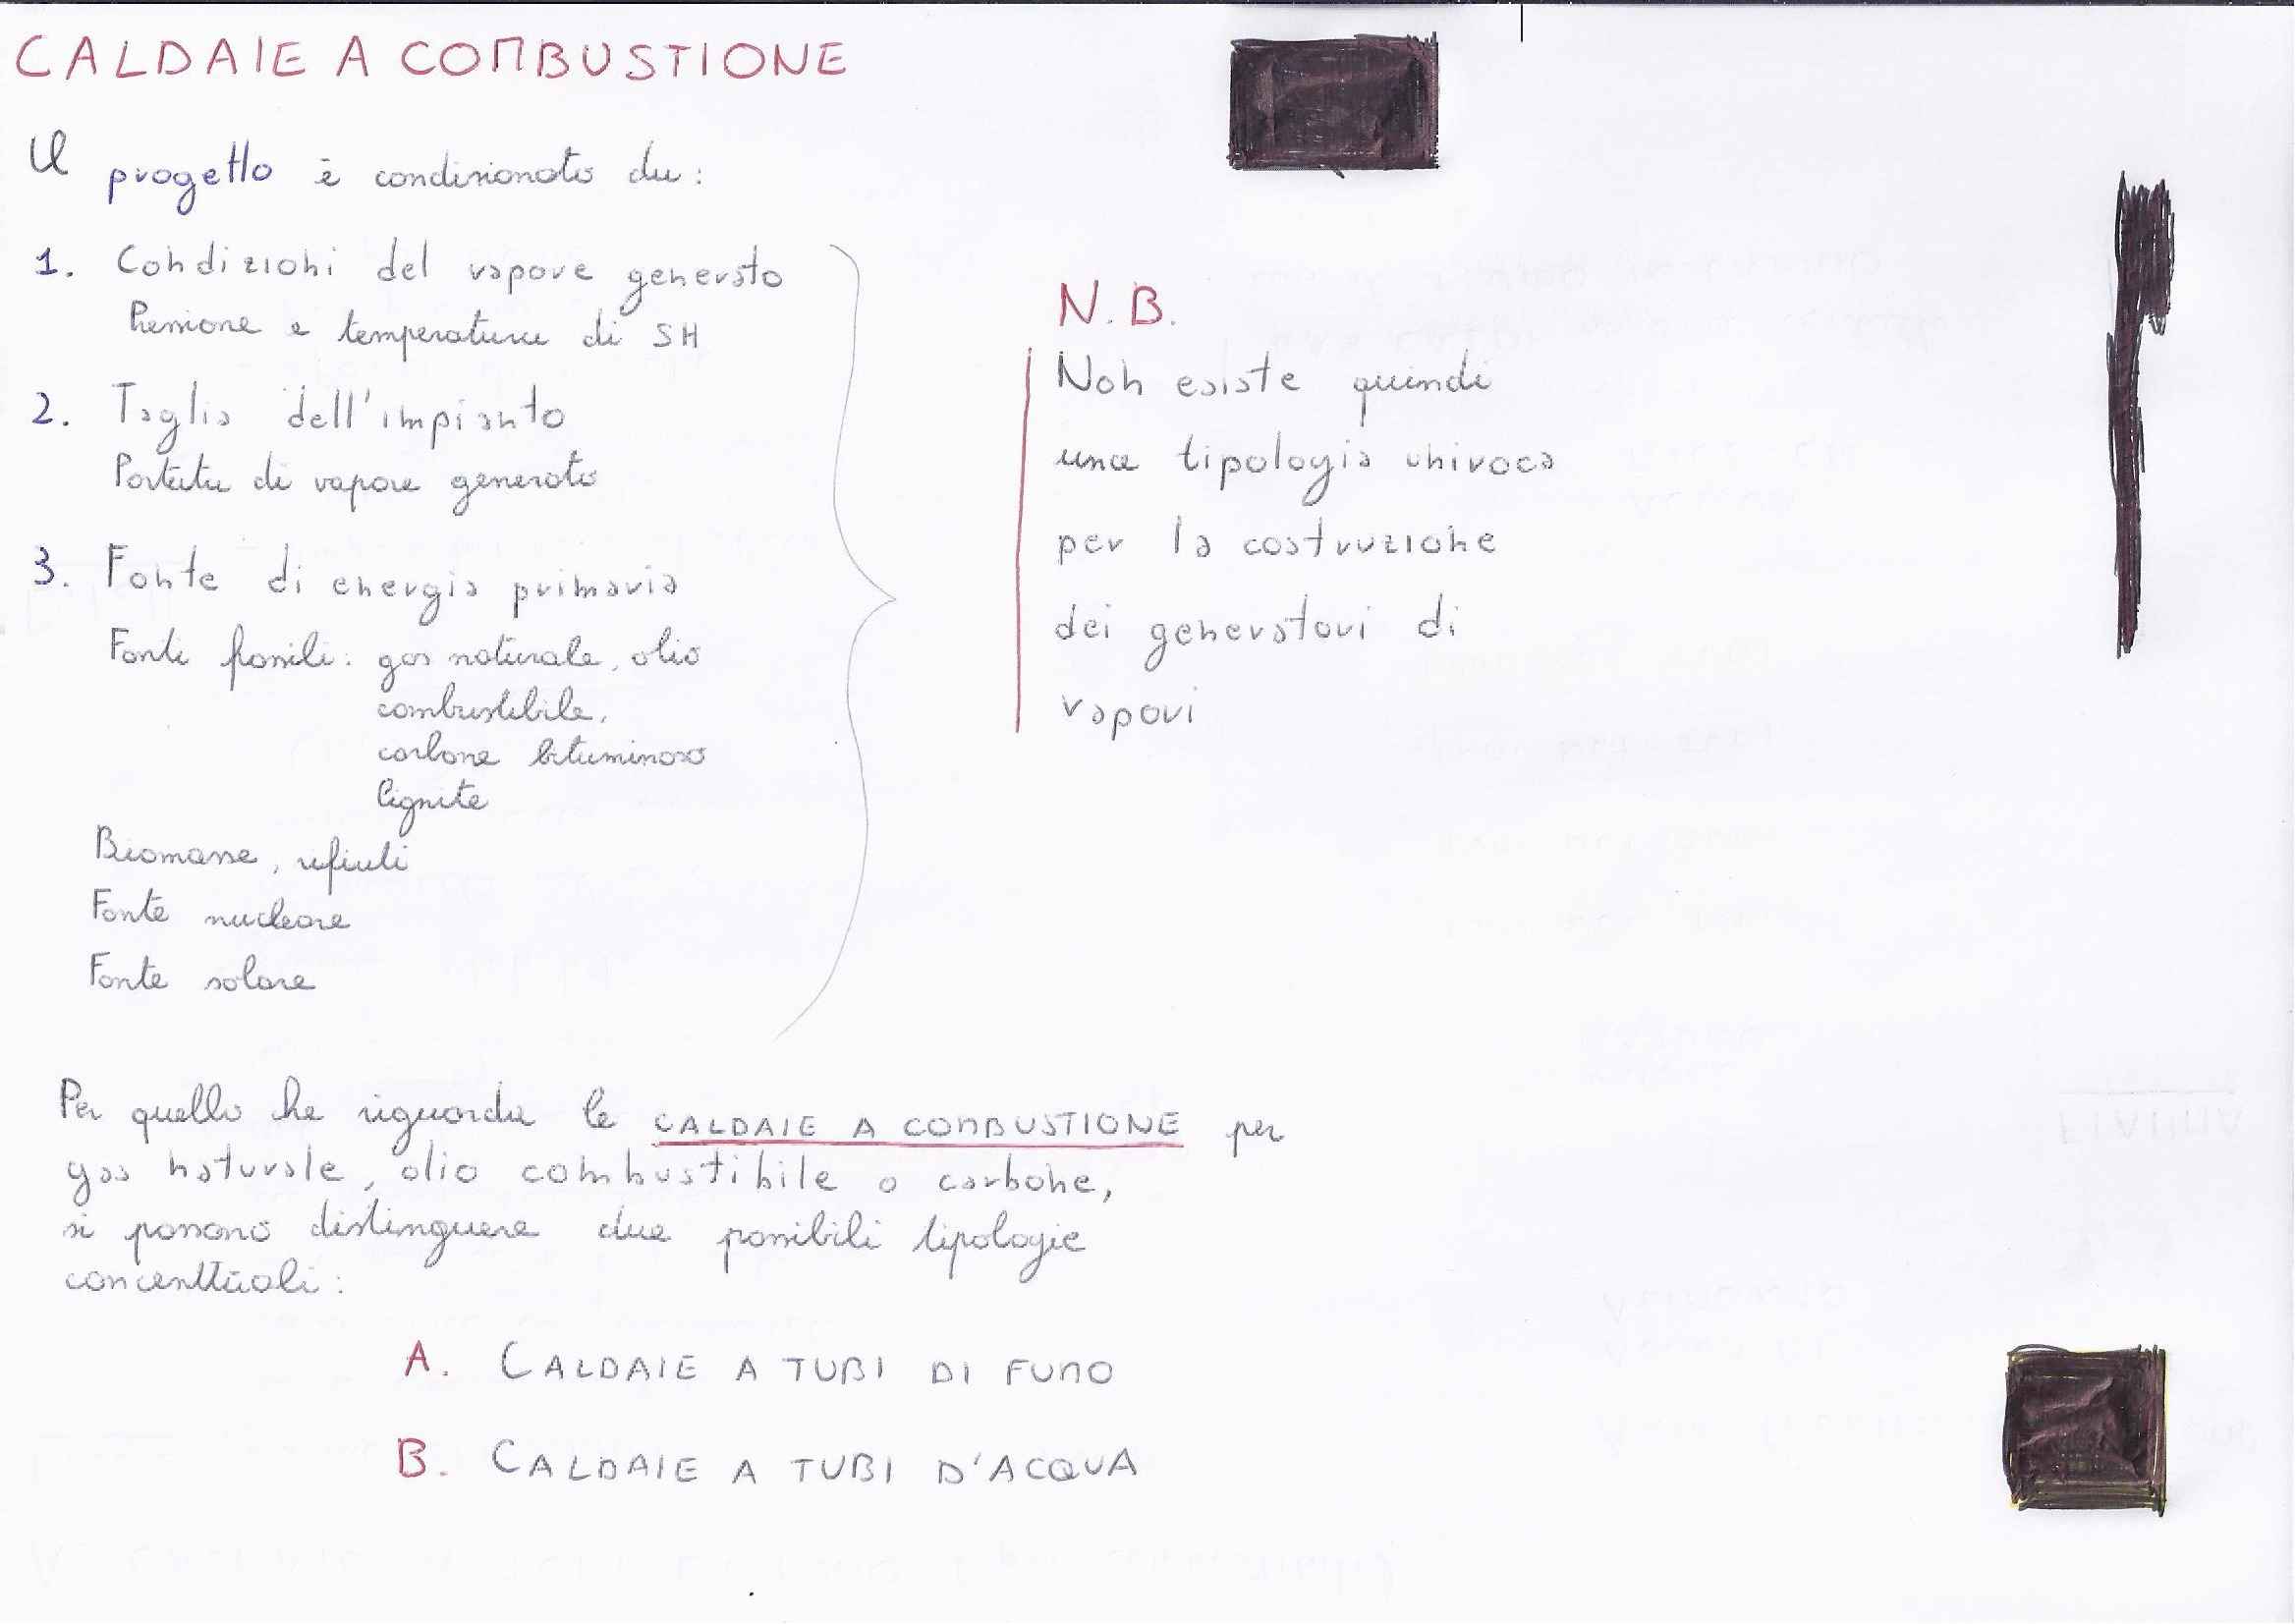 CALDAIE A COMBUSTIONE
Il progetto è condizionato da:
1. Condizioni del vapore generato
Pressione e temperatura di SH
2. Taglia dell'impianto
Portata di vapore generato
3. Fonte di energia primaria
Fonti fossili: gas naturale, olio
combustibile,
carbone bituminoso
lignite
Biomasse, rifiuti
Fonte nucleare
Fonte solare
N.B.
Non esiste quindi
una tipologia univoca
per la costruzione
dei generatori di
vapori
Per quello che riguarda le CALDAIE A COMBUSTIONE per
gas naturale, olio combustibile o carbone,
si possono distinguere due possibili tipologie
concettuali:
A. CALDAIE A TUBI DI FUMO
B. CALDAIE A TUBI D'ACQUA